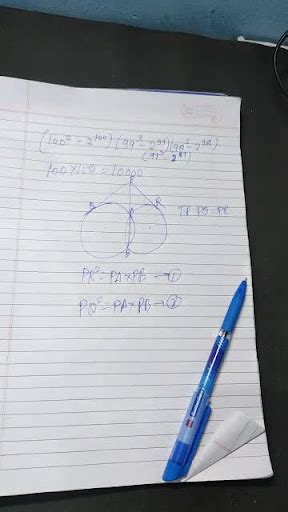 (100² - 2¹⁰⁰) (99² - 2⁹⁹) (98² - 2⁹⁸)
(97² 2⁹⁷)
100×100 = 10000
P
Q R T.P PQ=PR
A
B
PR² = PA×PB → ①
PQ² = PA×PB → ②